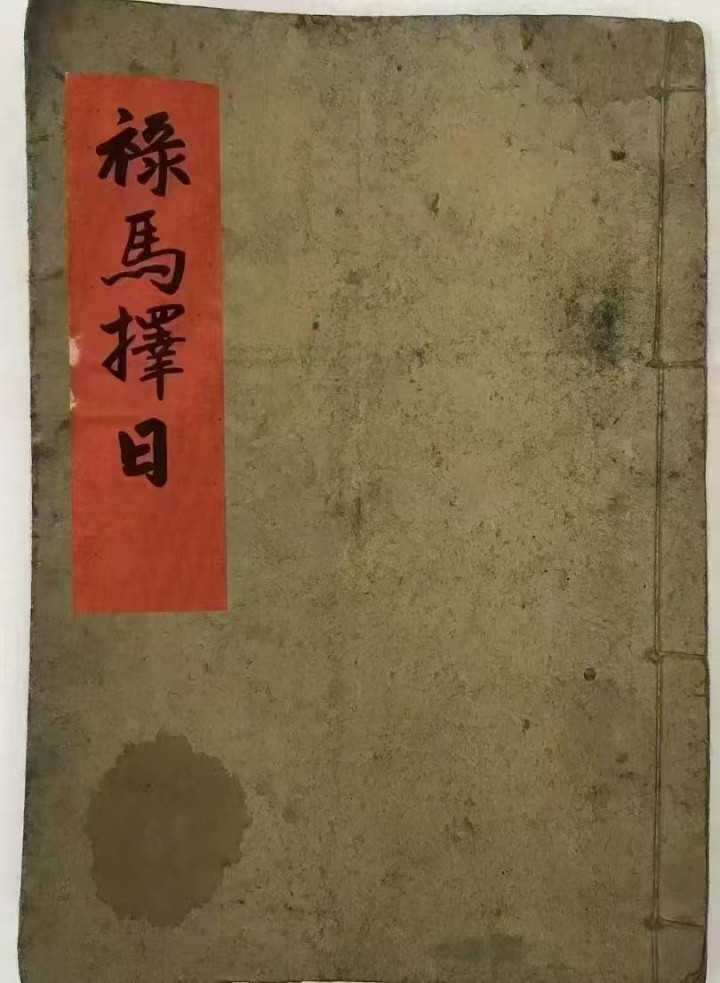 祿馬擇日